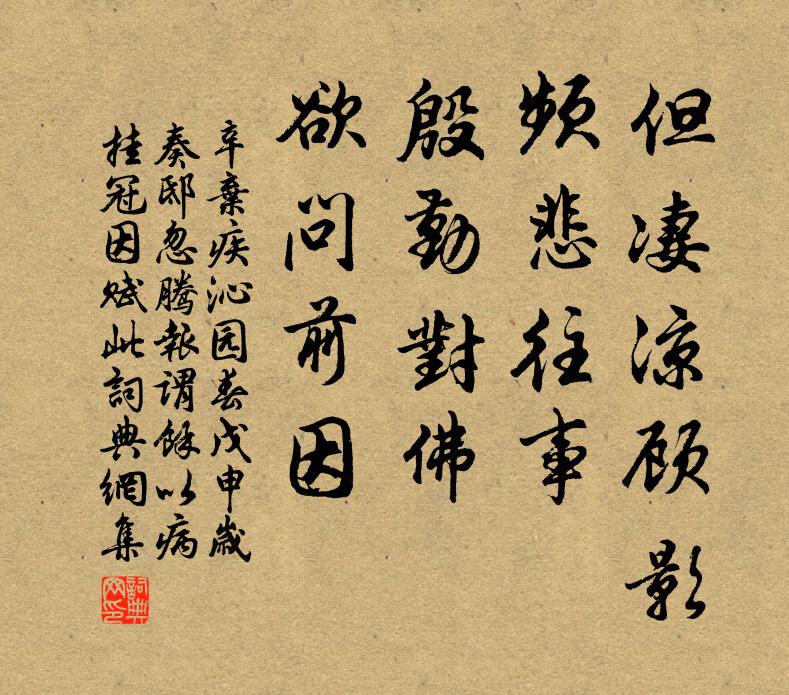 但凄凉顾影
頻悲往事
殷勤對佛
欲問前因
辛棄疾沁园春戊申歲
奏邸忽騰報謂餘以病
挂冠因赋此詞典網集